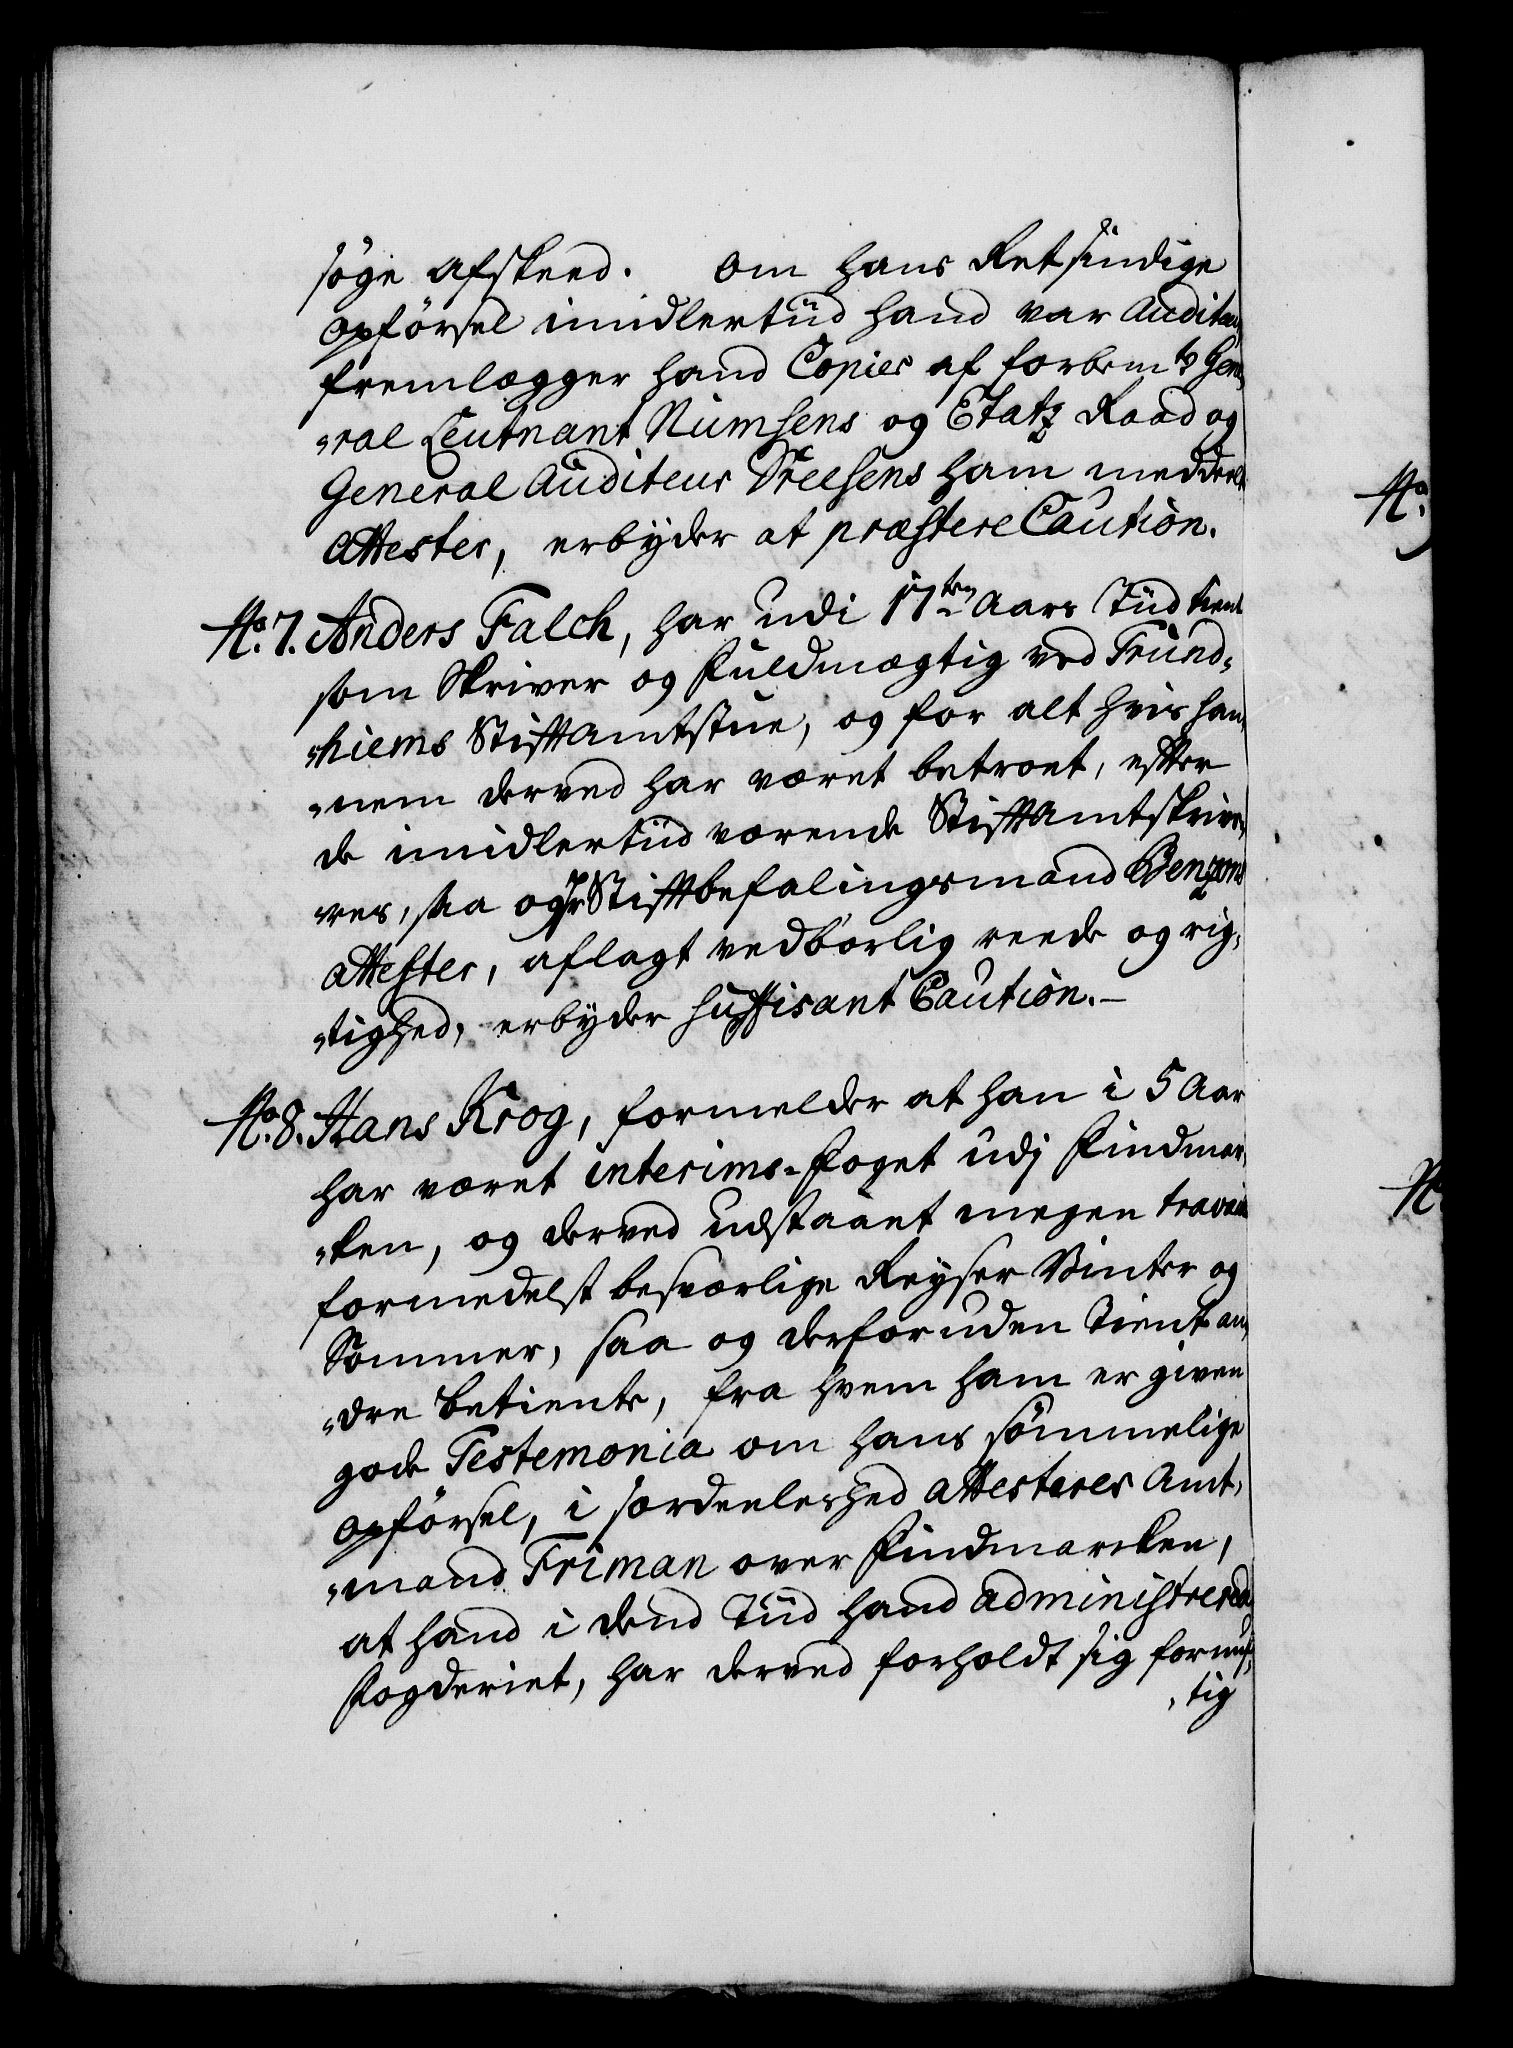 søge afskeed. Om hans Retsindige
opførsel imidlertiid hand var Auditeur
fremlægger hand Copier af forbemte Gene
"ral Leutnant Numsens og Etatz Raad og
General Auditeur Neelsens ham meddeelte
attester, erbyder at præstere Caution.
No. 7. Anders Falch, har udi 17ten Aars Tiid tient
som Skriver og Fuldmægtig ved Trund„
„hiems Stiftamtstue, og for alt hvis han„
„nem derved har været betroet, efter
de imidlertiid værende Stiftamtskrive„
„res, saa og hr Stiftbefalingsmand Benzons
attester, aflagt vedbørlig reede og rig„
„tighed, erbyder suffisant Caution.–
No. 8. Hans Krog, formelder at han i 5 Aar
har været interims-Foget udj Findmar„
„ken, og derved udstaaet megen travail
formedelst besværlige Reyser Vinter og
Sommer, saa og derforuden tient an„
„dre betiente, fra hvem ham er given
gode Testemonia om hans sømmelige
opførsel, i særdeeleshed attesteres Amt„
„mand Friman over Findmarcken,
at hand i dend Tiid hand administrerede
Fogderiet, har derved forholdt sig fornuf„
„tig
No.
No